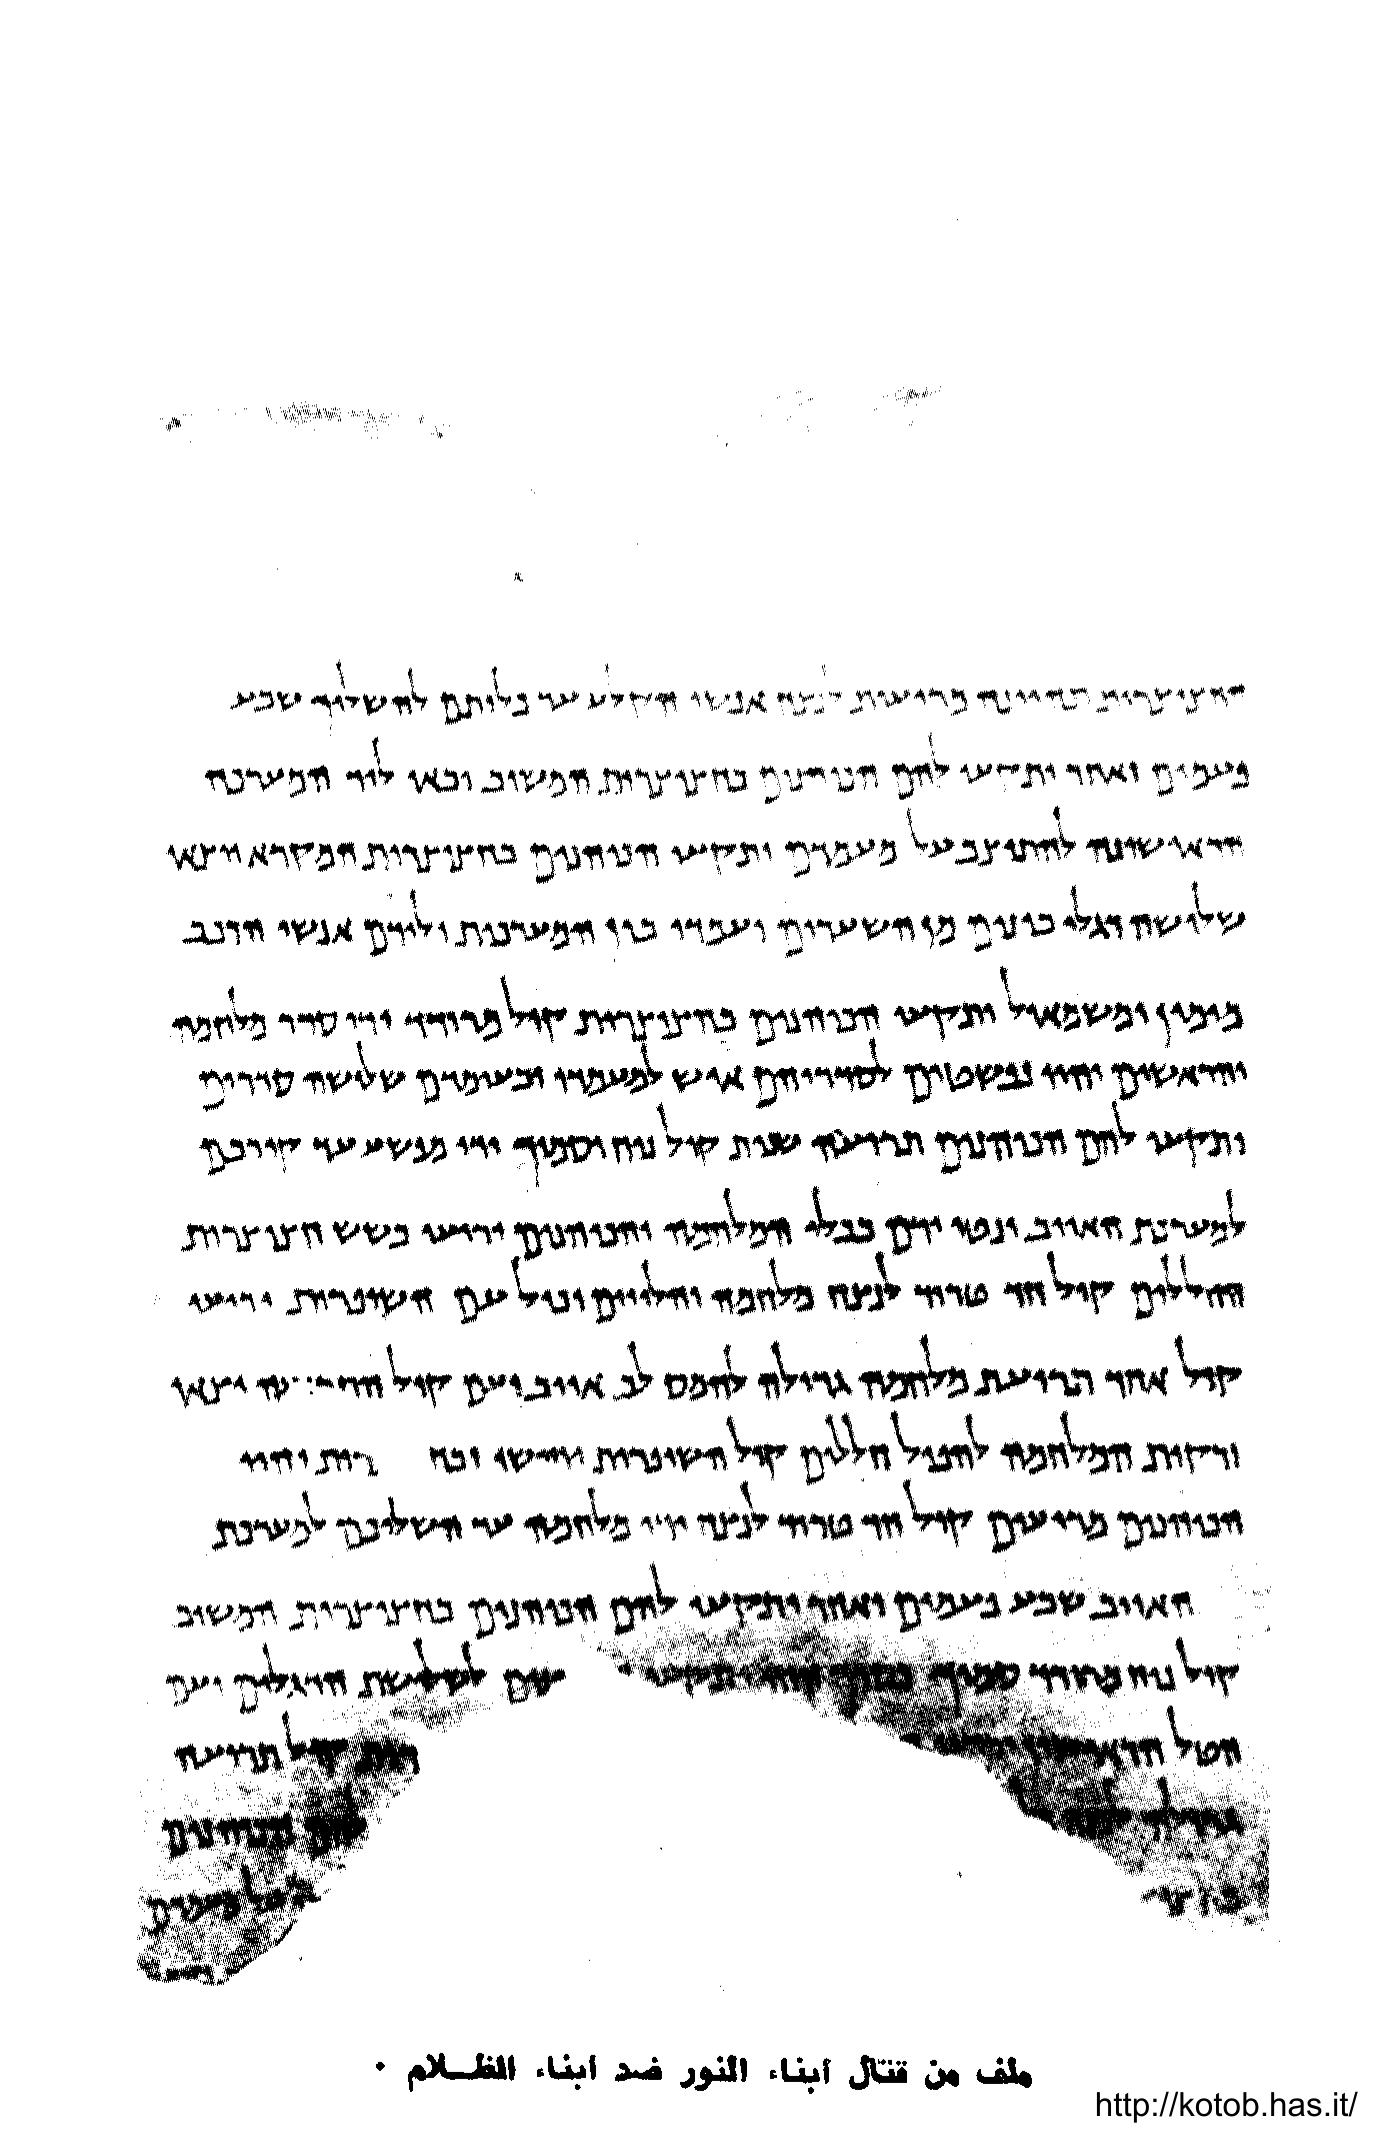 החצוצרות תהיינה מריעות לנצח אנשי הקלע עד כלותם להשליך שבע
פעמים ואחר יתקעו להם הכוהנים בחצוצרות המשוב ובאו ליד המערכה
הראישונה להתיצב על מעמדם ותקעו הכוהנים בחצוצרות המקרא ויצאו
שלושה דגלי בינים מן השערים ועמדו בין המערכות ולידם אנשי הרכב
מימין ומשמאול ותקעו הכוהנים בחצוצרות קול מרודד ידי סדר מלחמה
והראשים יהיו נפשטים לסדריהם איש למעמדו ובעומדם שלושה סדרים
ותקעו להם הכוהנים תרועה שנית קול נוח וסמוך ידי מפשע עד קורבם
למערכת האויב ונטו ידם בכלי המלחמה והכוהנים יריעו בשש חצוצרות
החללים קול חד טרוד לנצח מלחמה והלויים וכול עם השופרות יריעו
קול אחד תרועת מלחמה גדולה להמס לב אויב ועם קול יצאו
זרקות המלחמה להפיל חללים קול השופרות יחישו ובח רות יהיו
הכוהנים מריעים קול חד טרוד לנצח ידי מלחמה עד השליכם למערכת
האויב שבע פעמים ואחר יתקעו להם הכוהנים בחצוצרות המשוב
קול נוח מרודד סמוך כסרך הזה יתקעו לשלושת הדגלים ועם
הטל הראישון יריעו רות קול תרועה
גדולה לנצח הכוהנים
על מעמדם
ملف من قتال أبناء النور ضد أبناء الظلام .
http://kotob.has.it/